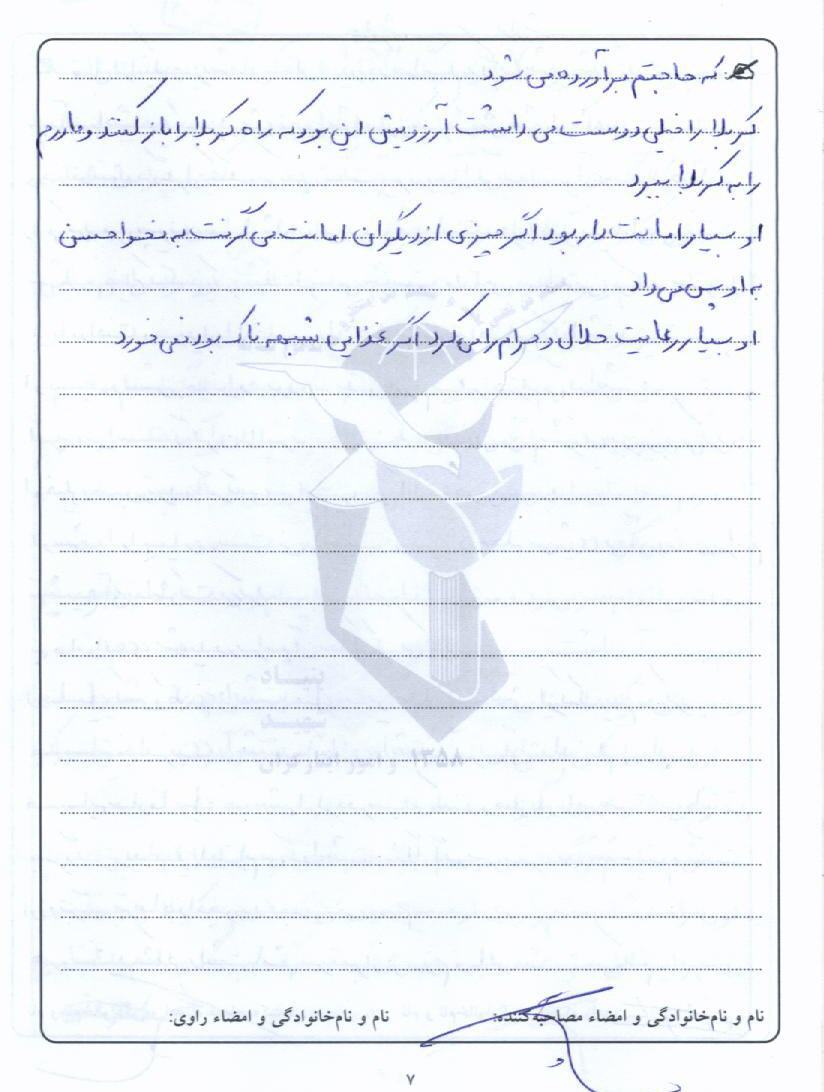 که حاجتم برآورده می شود
کربلا را خیلی دوست می داشت آرزویش این بود که راه کربلا را باز کنند و مادرم
را به کربلا ببرد
او بسیار امانت دار بود اگر چیزی از دیگران امانت می گرفت به نحو احسن
به او پس می داد
او بسیار رعایت حلال و حرام را می کرد اگر غذایی شبهه ناک بود نمی خورد
بنیاد
شهید
و امور ایثارگران ۱۳۵۸
نام و نام‌خانوادگی و امضاء مصاحبه‌کننده: نام و نام‌خانوادگی و امضاء راوی:
۷